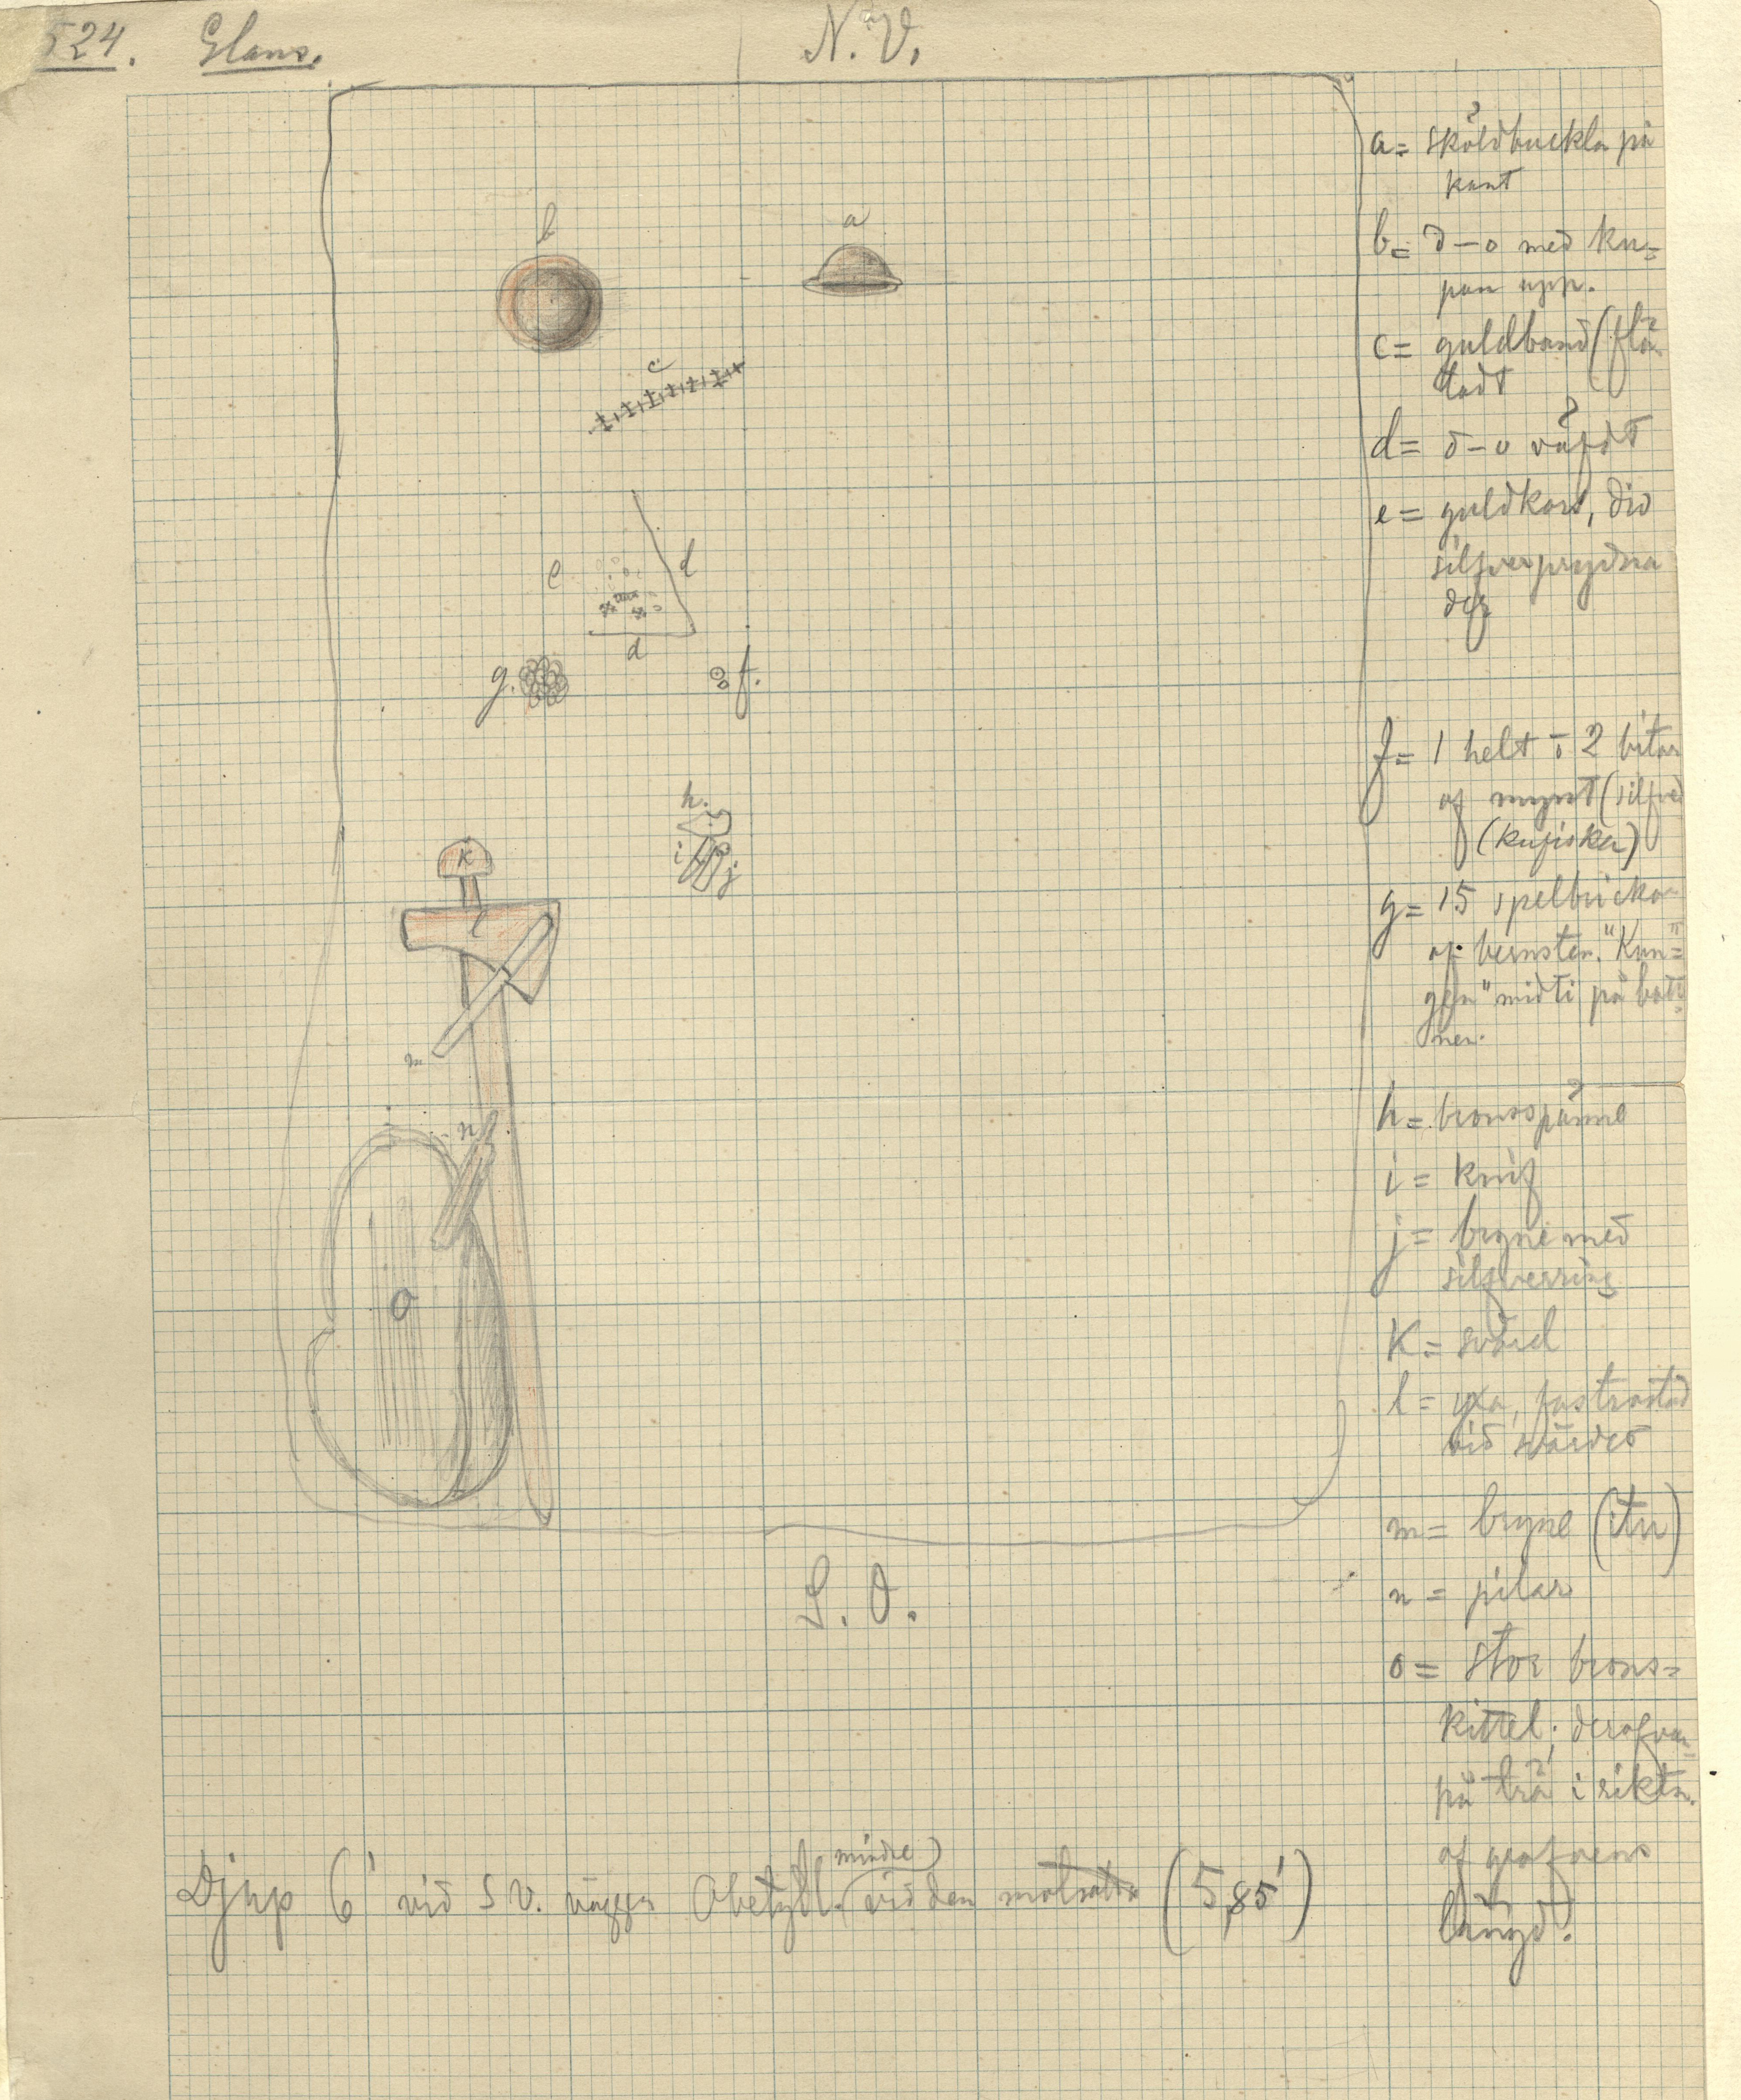 524. Glans.
N. V.
b
a
c
e
d
d
g.
f.
h.
i
j
K
l
m
n
o
S. O.
a = sköldbuckla på
kant
b = d-o med ku=
pan upp.
c = guldband (flä
tadt
d = d-o väfdt
e = guldkors, div
silfverprydna
der
f = 1 helt o 2 bitar
af mynt (silfver
(kufiska)
g = 15 spelbrickor
af bernsten. "Kun=
gen" midti på bott
nen.
h = bronsspänne
i = knif
j = bryne med
silfverring
K = svärd
l = yxa, fastrostad
vid svärdet
m = bryne (itu)
n = pilar
o = stor brons=
kittel; derofvan=
på trä i riktn.
af grafvens
längd.
Djup 6' vid S V. väggen Obetydl. mindre vid den motsatta (5,85')